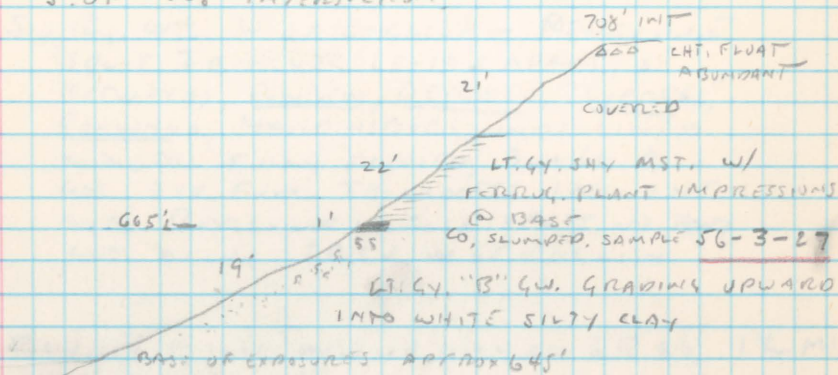 708' INT
△△△ CHT. FLOAT
ABUNDANT
21'
COVERED
22'
LT. GY. SHY MST. W/
FERRUG. PLANT IMPRESSIONS
@ BASE
665'±
1'
SS
CO, SLUMPED. SAMPLE 56-3-27
19'
LT. GY. "B" GW. GRADING UPWARD
INTO WHITE SILTY CLAY
BASE OF EXPOSURES APPROX 645'